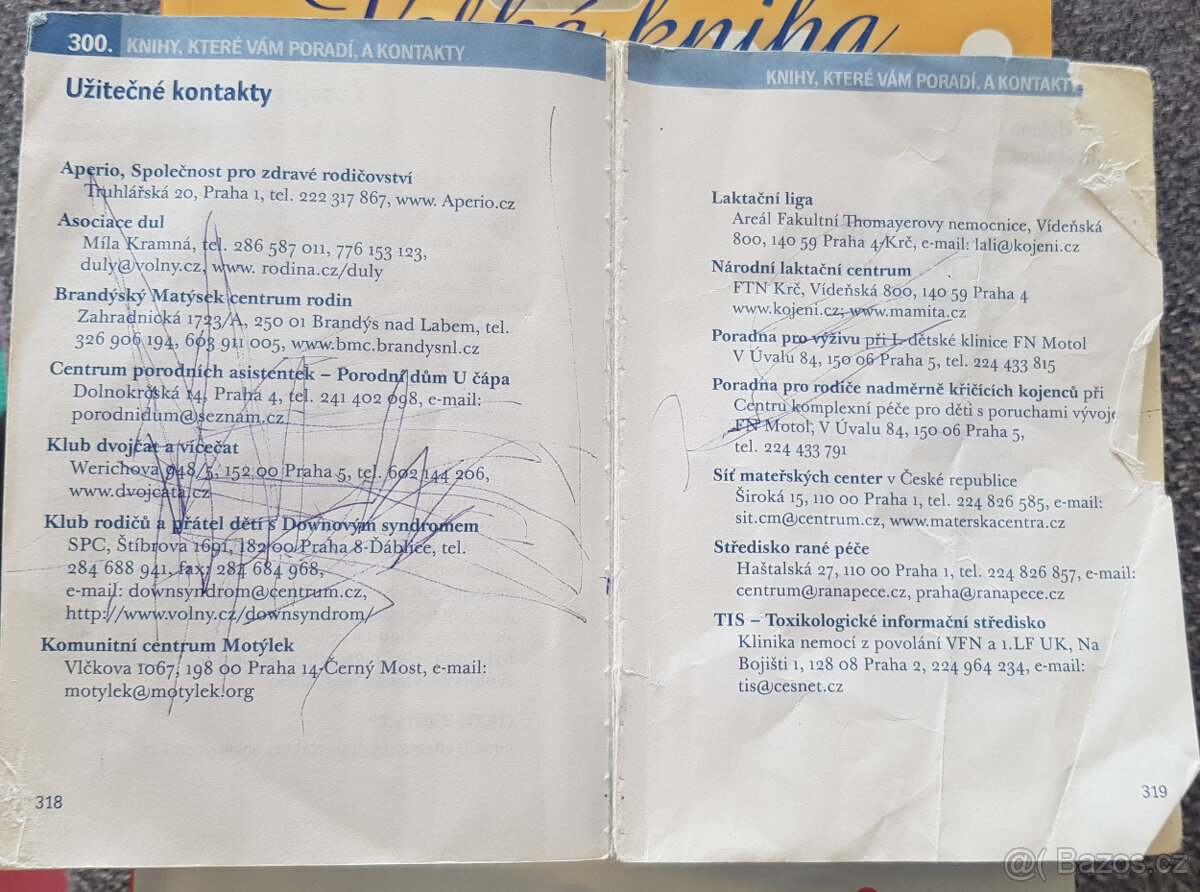 Velká kniha
300. KNIHY, KTERÉ VÁM PORADÍ, A KONTAKTY
Užitečné kontakty
Aperio, Společnost pro zdravé rodičovství
Truhlářská 20, Praha 1, tel. 222 317 867, www. Aperio.cz
Asociace dul
Míla Kramná, tel. 286 587 011, 776 153 123,
duly@volny.cz, www. rodina.cz/duly
Brandýský Matýsek centrum rodin
Zahradnická 1723/A, 250 01 Brandýs nad Labem, tel.
326 906 194, 603 911 005, www.bmc.brandysnl.cz
Centrum porodních asistentek – Porodní dům U čápa
Dolnokrčská 14, Praha 4, tel. 241 402 098, e-mail:
porodnidum@seznam.cz
Klub dvojčat a vícečat
Werichova 948/5, 152 00 Praha 5, tel. 602 144 206,
www.dvojcata.cz
Klub rodičů a přátel dětí s Downovým syndromem
SPC, Štíbrova 1691, 182 00 Praha 8-Ďáblice, tel.
284 688 941, fax: 284 684 968,
e-mail: downsyndrom@centrum.cz,
http://www.volny.cz/downsyndrom/
Komunitní centrum Motýlek
Vlčkova 1067, 198 00 Praha 14-Černý Most, e-mail:
motylek@motylek.org
318
KNIHY, KTERÉ VÁM PORADÍ, A KONTAKTY
Laktační liga
Areál Fakultní Thomayerovy nemocnice, Vídeňská
800, 140 59 Praha 4-Krč, e-mail: lali@kojeni.cz
Národní laktační centrum
FTN Krč, Vídeňská 800, 140 59 Praha 4
www.kojeni.cz; www.mamita.cz
Poradna pro výživu při I. dětské klinice FN Motol
V Úvalu 84, 150 06 Praha 5, tel. 224 433 815
Poradna pro rodiče nadměrně křičících kojenců při
Centru komplexní péče pro děti s poruchami vývoje
FN Motol, V Úvalu 84, 150 06 Praha 5,
tel. 224 433 791
Síť mateřských center v České republice
Široká 15, 110 00 Praha 1, tel. 224 826 585, e-mail:
sit.cm@centrum.cz, www.materskacentra.cz
Středisko rané péče
Haštalská 27, 110 00 Praha 1, tel. 224 826 857, e-mail:
centrum@ranapece.cz, praha@ranapece.cz
TIS – Toxikologické informační středisko
Klinika nemocí z povolání VFN a 1.LF UK, Na
Bojišti 1, 128 08 Praha 2, 224 964 234, e-mail:
tis@cesnet.cz
319
@( Bazos.cz